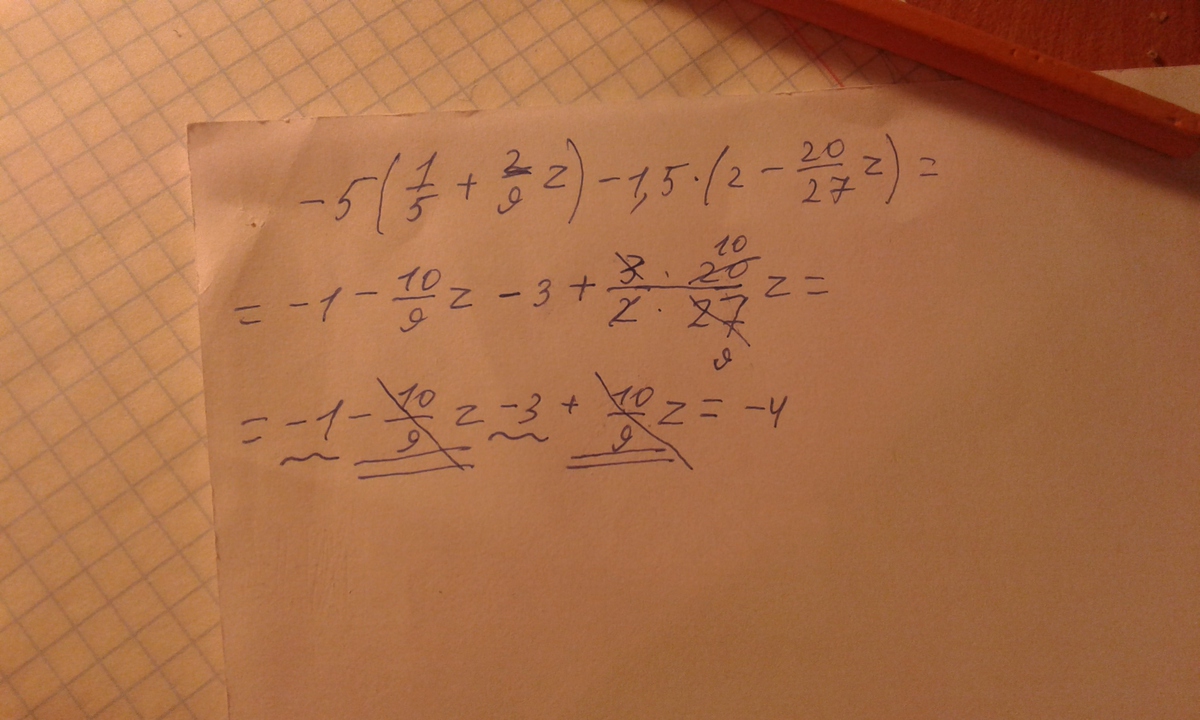 -5(1/5 + 2/9 z) - 1,5·(2 - 20/27 z) =
= -1 - 10/9 z - 3 + 3·20/2·27 z = 10 9
= -1 - 10/9 z - 3 + 10/9 z = -4